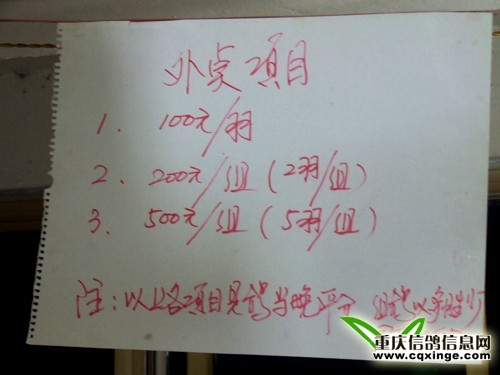 外桌项目
1. 100元/羽
2. 200元/组(2羽/组)
3. 500元/组(5羽/组)
注:以上各项目见鸽当晚平分
重庆信鸽信息网
www.cqxinge.com